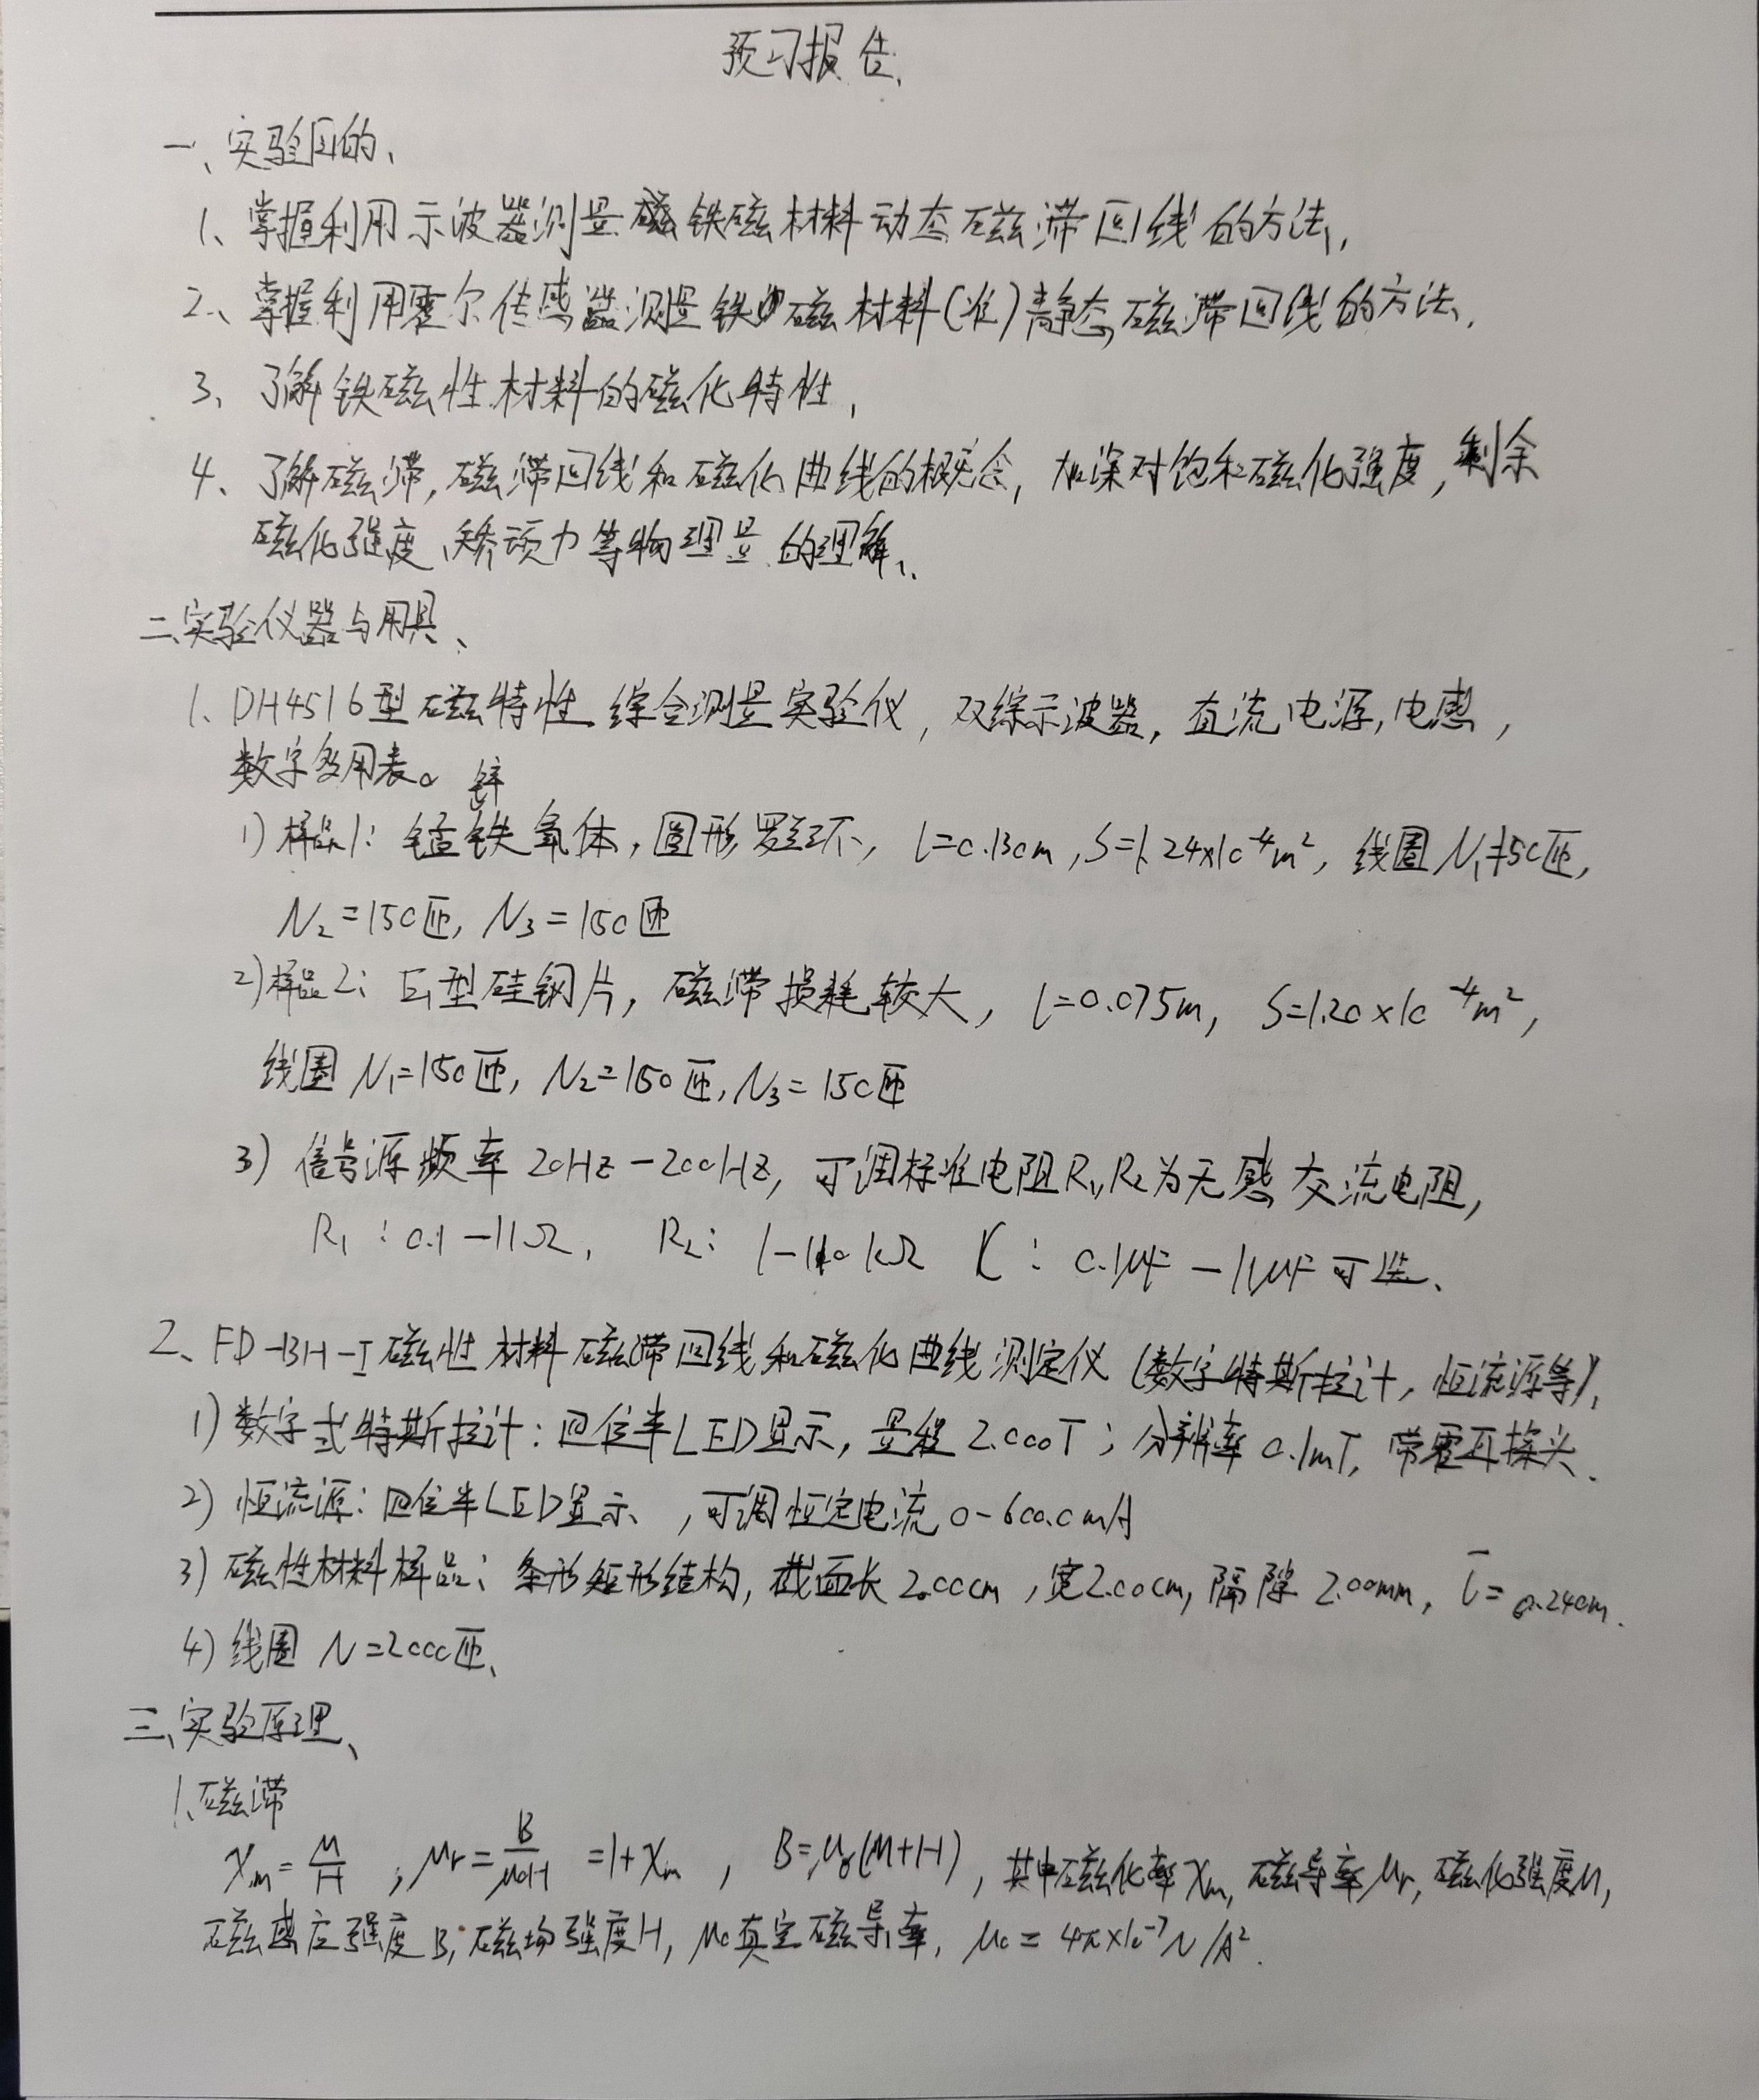 预习报告、
一、实验目的、
1、掌握利用示波器测量铁磁材料动态磁滞回线的方法,
2、掌握利用霍尔传感器测量铁磁材料(准)静态磁滞回线的方法、
3、了解铁磁性材料的磁化特性,
4、了解磁滞,磁滞回线和磁化曲线的概念,加深对饱和磁化强度,剩余
磁化强度、矫顽力等物理量的理解、
二、实验仪器与用具、
1、DH4516型磁特性综合测量实验仪,双综示波器,直流电源,电感,
数字多用表。
1)样品1:锰锌铁氧体,圆形罗环,l=0.130m,S=1.24×10⁻⁴m²,线圈N₁=150匝,
N₂=150匝,N₃=150匝
2)样品2:EI型硅钢片,磁滞损耗较大,l=0.075m,S=1.20×10⁻⁴m²,
线圈N₁=150匝,N₂=150匝,N₃=150匝
3)信号源频率20Hz-200Hz,可调标准电阻R₁,R₂为无感交流电阻,
R₁:0.1-11Ω,R₂:1-110kΩ C:0.1μF-11μF可选、
2、FD-BH-I磁性材料磁滞回线和磁化曲线测定仪(数字特斯拉计,恒流源等),
1)数字式特斯拉计:四位半LED显示,量程2.000T;分辨率0.1mT,带霍耳探头、
2)恒流源:四位半LED显示,可调恒定电流0-600.0mA
3)磁性材料样品:条形矩形结构,截面长2.00cm,宽2.00cm,隔隙2.00mm,l̄=0.240m.
4)线圈N=2000匝、
三、实验原理、
1、磁滞
χm=M/H,μr=B/μ0H=1+χm,B=μ0(M+H),其中磁化率χm,磁导率μr,磁化强度M,
磁感应强度B,磁场强度H,μ0真空磁导率,μ0=4π×10⁻⁷N/A².